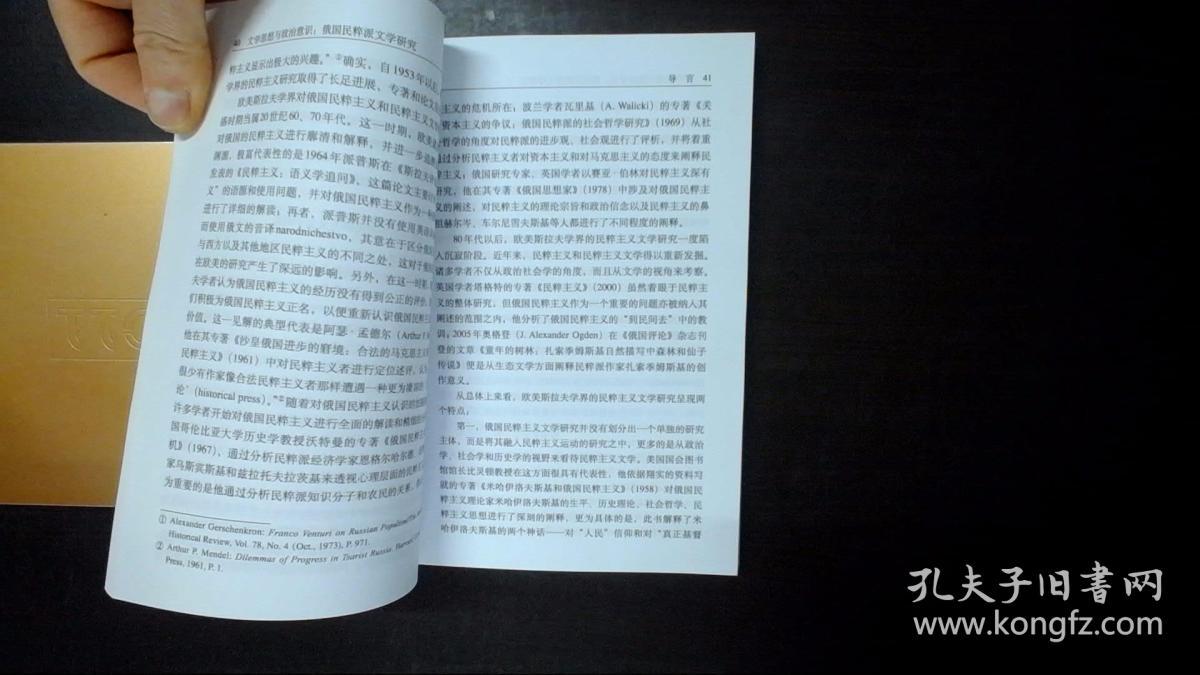 40 文学思想与政治意识：俄国民粹派文学研究
粹主义显示出极大的兴趣。”①确实，自1953年以后，
学界的民粹主义研究取得了长足进展，专著和论文
欧美斯拉夫学界对俄国民粹主义和民粹主义文学
络时期当属20世纪60、70年代。这一时期，欧美
对俄国的民粹主义进行廓清和解释，并进一步追
渊源。极富代表性的是1964年派普斯在《斯拉夫
发表的《民粹主义：语义学追问》，这篇论文主要
义”的语源和使用问题，并对俄国民粹主义作为一种
进行了详细的解读；再者，派普斯并没有使用英语
而使用俄文的音译narodnichestvo，其意在于区分俄
与西方以及其他地区民粹主义的不同之处，这对于
在欧美的研究产生了深远的影响。另外，在这一时期，
夫学者认为俄国民粹主义的经历没有得到公正的评价，
们积极为俄国民粹主义正名，以便重新认识俄国民粹主
价值。这一见解的典型代表是阿瑟·孟德尔（Arthur P.
他在其专著《沙皇俄国进步的窘境：合法的马克思主义
民粹主义》（1961）中对民粹主义者进行定位述评，认
很少有作家像合法民粹主义者那样遭遇一种更为凄
论’（historical press）。”②随着对俄国民粹主义认识的
许多学者开始对俄国民粹主义进行全面的解读和精细
国哥伦比亚大学历史学教授沃特曼的专著《俄国民粹主
机》（1967），通过分析民粹派经济学家恩格尔哈尔德、
家乌斯宾斯基和兹拉托夫拉茨基来透视心理层面的民粹
为重要的是他通过分析民粹派知识分子和农民的关系，
① Alexander Gerschenkron: Franco Venturi on Russian Populism,
Historical Review, Vol. 78, No. 4 (Oct., 1973), P. 971.
② Arthur P. Mendel: Dilemmas of Progress in Tsarist Russia, Harvard
Press, 1961, P. 1.
导 言 41
主义的危机所在；波兰学者瓦里基（A. Walicki）的专著《关
资本主义的争议：俄国民粹派的社会哲学研究》（1969）从社
哲学的角度对民粹派的进步观、社会观进行了评析，并将着重
通过分析民粹主义者对资本主义和对马克思主义的态度来阐释民
粹主义；俄国研究专家、英国学者以赛亚·伯林对民粹主义深有
研究，他在其专著《俄国思想家》（1978）中涉及对俄国民粹主
义的阐述，对民粹主义的理论宗旨和政治信念以及民粹主义的鼻
祖赫尔岑、车尔尼雪夫斯基等人都进行了不同程度的阐释。
80年代以后，欧美斯拉夫学界的民粹主义文学研究一度陷
入沉寂阶段。近年来，民粹主义和民粹主义文学得以重新发掘。
诸多学者不仅从政治社会学的角度，而且从文学的视角来考察。
英国学者塔格特的专著《民粹主义》（2000）虽然着眼于民粹主
义的整体研究，但俄国民粹主义作为一个重要的问题亦被纳入其
阐述的范围之内，他分析了俄国民粹主义的“到民间去”中的教
训；2005年奥格登（J. Alexander Ogden）在《俄国评论》杂志刊
登的文章《童年的树林：扎索季姆斯基自然描写中森林和仙子
传说》便是从生态文学方面阐释民粹派作家扎索季姆斯基的创
作意义。
从总体上来看，欧美斯拉夫学界的民粹主义文学研究呈现两
个特点：
第一，俄国民粹主义文学研究并没有划分出一个单独的研究
主体，而是将其融入民粹主义运动的研究之中，更多的是从政治
学、社会学和历史学的视野来看待民粹主义文学。美国国会图书
馆馆长比灵顿教授在这方面很具有代表性，他依据翔实的资料写
就的专著《米哈伊洛夫斯基和俄国民粹主义》（1958）对俄国民
粹主义理论家米哈伊洛夫斯基的生平、历史理论、社会哲学、民
粹主义思想进行了深刻的阐释，更为具体的是，此书解释了米
哈伊洛夫斯基的两个神话——对“人民”信仰和对“真正基督
孔夫子旧書网
www.kongfz.com